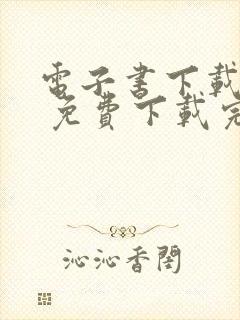 電子書下載
免費下載完
沁沁香閨